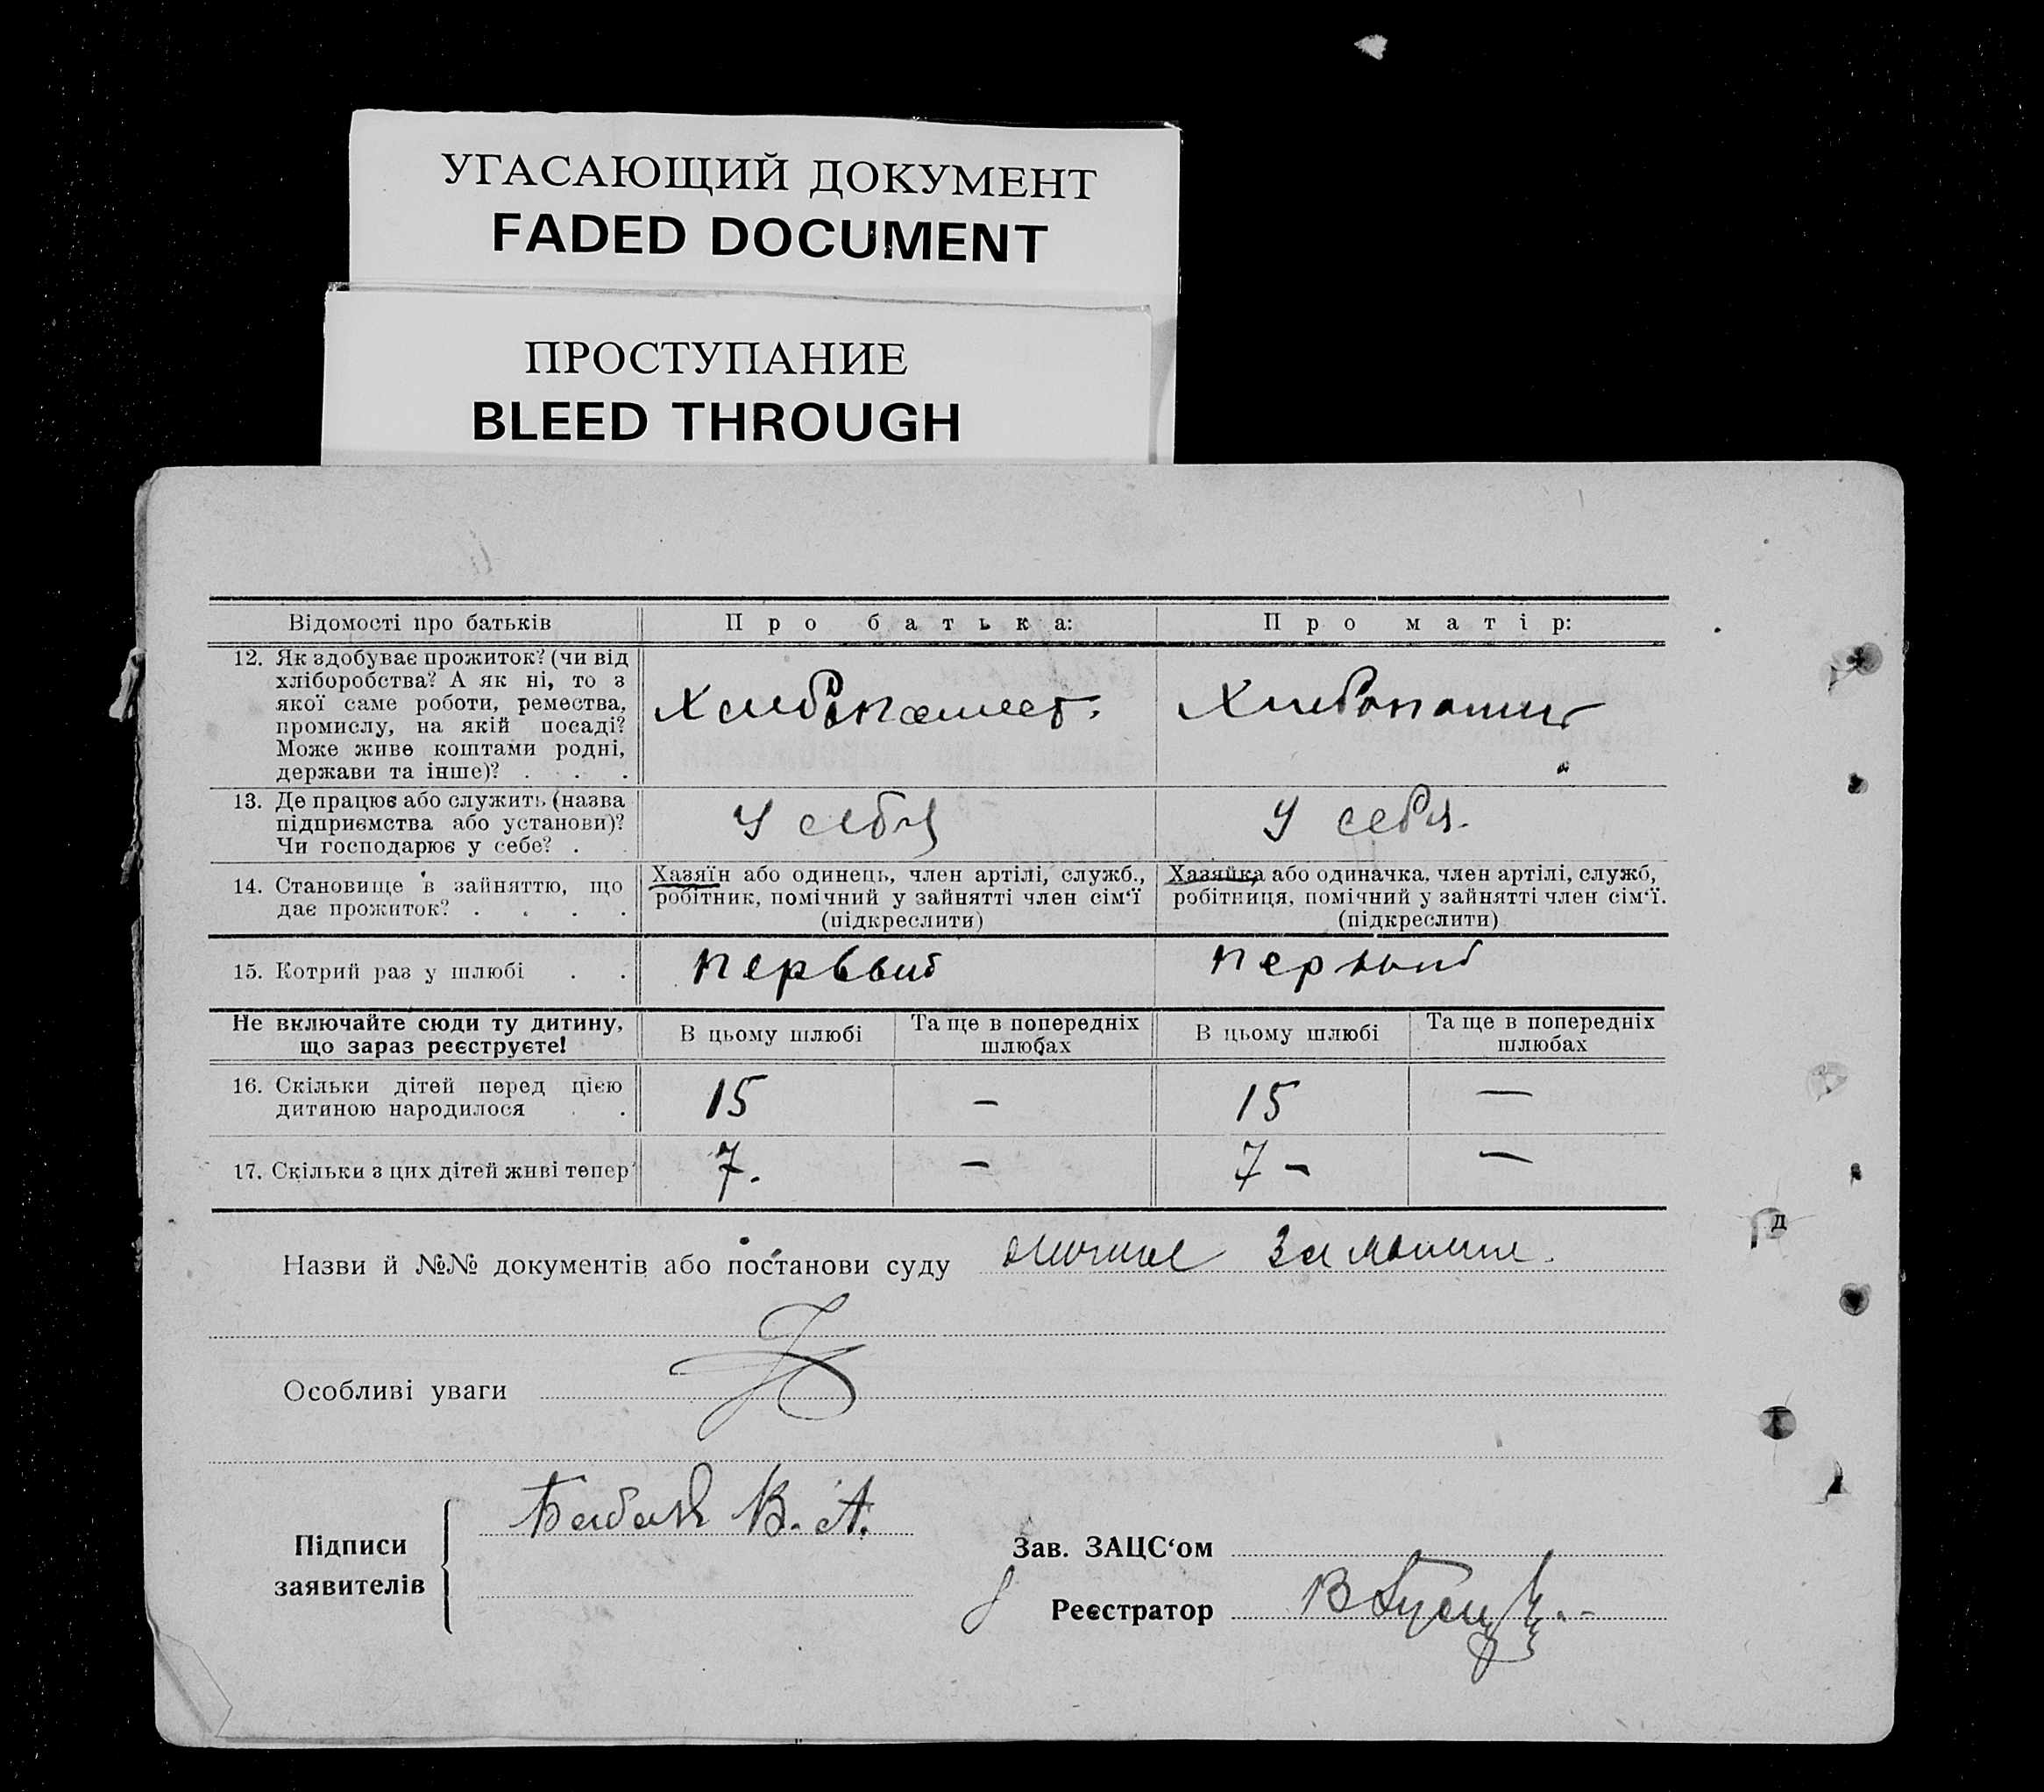 УГАСАЮЩИЙ ДОКУМЕНТ
FADED DOCUMENT
ПРОСТУПАНИЕ
BLEED THROUGH
Відомості про батьків
Про батька:
Про матір:
12. Як здобуває прожиток? (чи від
хліборобства? А як ні, то з
якої саме роботи, ремества,
промислу, на якій посаді?
Може живе коштами родні,
держави та інше)? . . .
13. Де працює або служить (назва
підприємства або установи)?
Чи господарює у себе? .
У себя
У себя.
14. Становище в зайняттю, що
дає прожиток? . . . .
Хазяїн або одинець, член артілі, служб.,
робітник, помічний у зайнятті член сім'ї
(підкреслити)
Хазяйка або одиначка, член артілі, служб,
робітниця, помічний у зайнятті член сім'ї.
(підкреслити)
15. Котрий раз у шлюбі . .
первый
первый
Не включайте сюди ту дитину,
що зараз реєструєте!
В цьому шлюбі
Та ще в попередніх
шлюбах
В цьому шлюбі
Та ще в попередніх
шлюбах
16. Скільки дітей перед цією
дитиною народилося . .
15
—
15
—
17. Скільки з цих дітей живі тепер
7.
—
7 –
—
Назви й №№ документів або постанови суду
Особливі уваги
Підписи
заявителів
В. А.
Зав. ЗАЦС'ом
Реєстратор
д